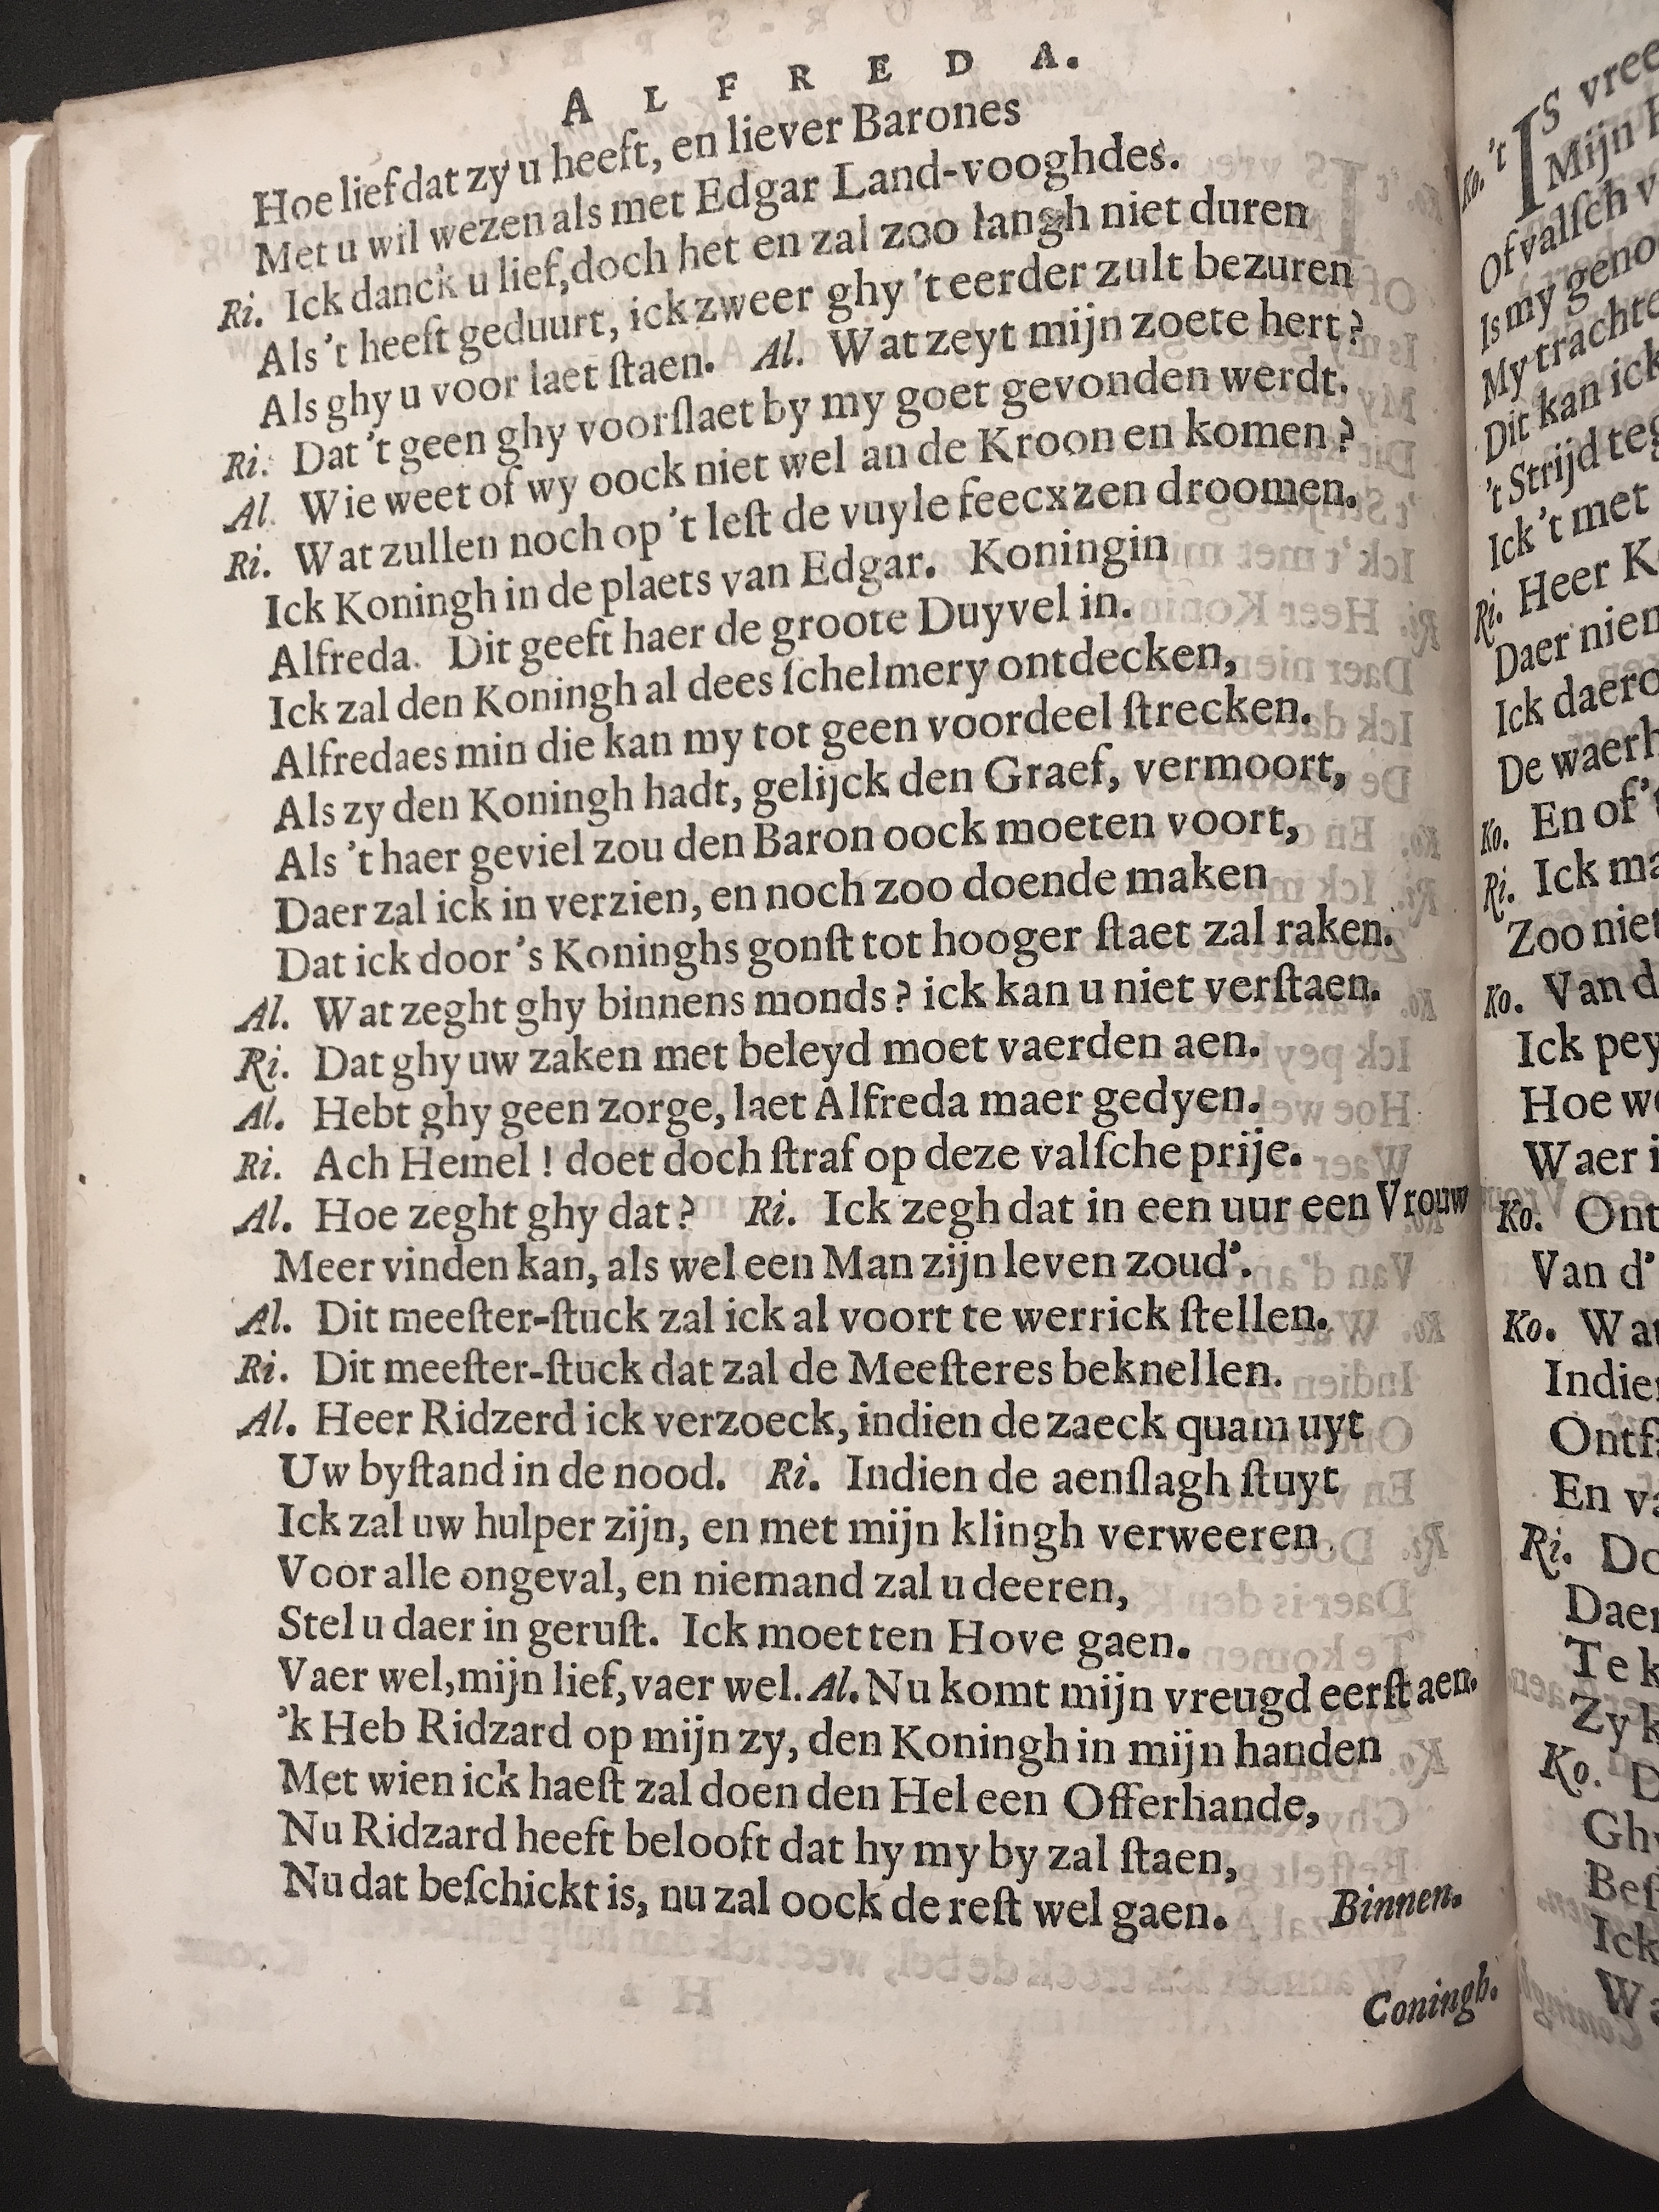 ALFREDA.
Hoe lief dat zy u heeft, en liever Barones
Met u wil wezen als met Edgar Land-vooghdes.
Ri. Ick danck u lief, doch het en zal zoo langh niet duren
Als 't heeft geduurt, ick zweer ghy 't eerder zult bezuren
Als ghy u voor laet ſtaen. Al. Wat zeyt mijn zoete hert?
Ri. Dat 't geen ghy voorſlaet by my goet gevonden werdt.
Al. Wie weet of wy oock niet wel an de Kroon en komen?
Ri. Wat zullen noch op 't leſt de vuyle feecxzen droomen.
Ick Koningh in de plaets van Edgar. Koningin
Alfreda. Dit geeft haer de groote Duyvel in.
Ick zal den Koningh al dees ſchelmery ontdecken,
Alfredaes min die kan my tot geen voordeel ſtrecken.
Als zy den Koningh hadt, gelijck den Graef, vermoort,
Als 't haer geviel zou den Baron oock moeten voort,
Daer zal ick in verzien, en noch zoo doende maken
Dat ick door 's Koninghs gonſt tot hooger ſtaet zal raken.
Al. Wat zeght ghy binnens monds? ick kan u niet verſtaen.
Ri. Dat ghy uw zaken met beleyd moet vaerden aen.
Al. Hebt ghy geen zorge, laet Alfreda maer gedyen.
Ri. Ach Hemel! doet doch ſtraf op deze valſche prije.
Al. Hoe zeght ghy dat? Ri. Ick zegh dat in een uur een Vrouw
Meer vinden kan, als wel een Man zijn leven zoud'.
Al. Dit meeſter-ſtuck zal ick al voort te werrick ſtellen.
Ri. Dit meeſter-ſtuck dat zal de Meeſteres beknellen.
Al. Heer Ridzerd ick verzoeck, indien de zaeck quam uyt
Uw byſtand in de nood. Ri. Indien de aenſlagh ſtuyt
Ick zal uw hulper zijn, en met mijn klingh verweeren
Voor alle ongeval, en niemand zal u deeren,
Stel u daer in geruſt. Ick moet ten Hove gaen.
Vaer wel, mijn lief, vaer wel. Al. Nu komt mijn vreugd eerſt aen.
'k Heb Ridzard op mijn zy, den Koningh in mijn handen
Met wien ick haeſt zal doen den Hel een Offerhande,
Nu Ridzard heeft belooft dat hy my by zal ſtaen,
Nu dat beſchickt is, nu zal oock de reſt wel gaen. Binnen.
Coningh.
Ko. 't IS
Mijn
Of valſch
Is my
My
Dit kan ick
't Strijd
Ick 't met
Ri. Heer
Daer
Ick
De
Ko. En of
Ri. Ick
Zoo niet
Ko. Van
Ick
Hoe
Waer
Ko.
Van d'
Ko.
En
Ri.
Te
Zy
Ko.
Ick